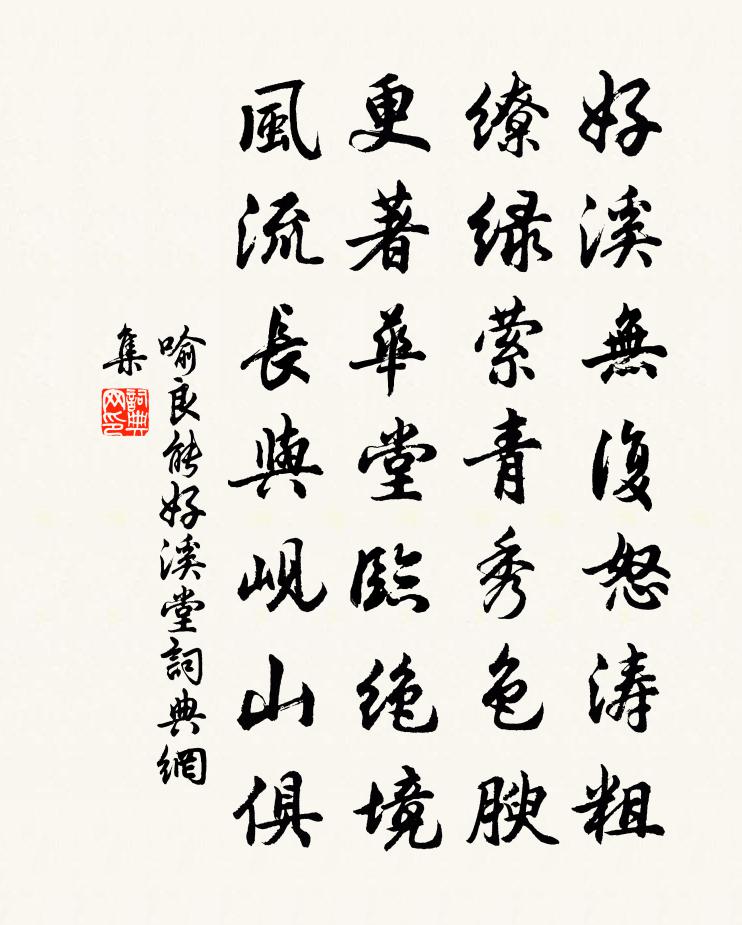 好溪無復怒涛粗
繚緑萦青秀色腴
更著華堂臨絶境
風流長與峴山俱
喻良能好溪堂詞典網
集
詞典網印